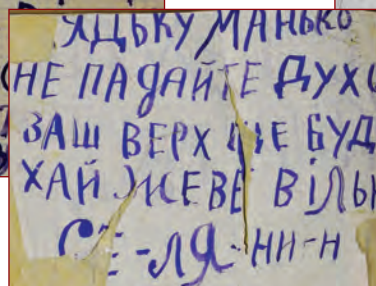 ЯДЬКУ МАНЬКО
НЕ ПАДАЙТЕ ДУХО
ЗАШ ВЕРХ ЩЕ БУД
ХАЙ ЖЕВЕ ВІЛЬН
СЕ-ЛЯ-НИ-Н